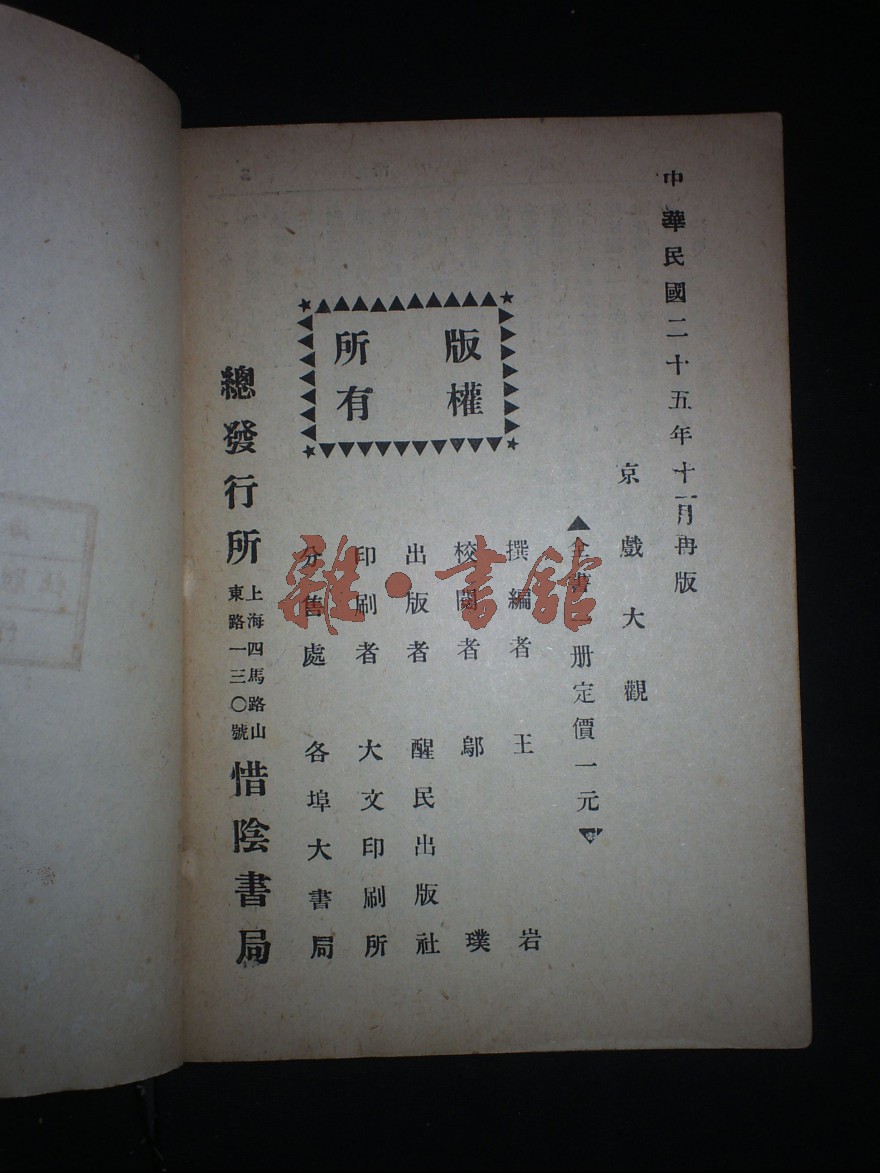 中華民國二十五年十一月再版
京戲大觀
▲全書一册定價一元▼
撰編者 王岩
校閱者 鄔璞
出版者 醒民出版社
印刷者 大文印刷所
分售處 各埠大書局
版權
所有
總發行所 上海四馬路山東路一三〇號 惜陰書局
雜·書館